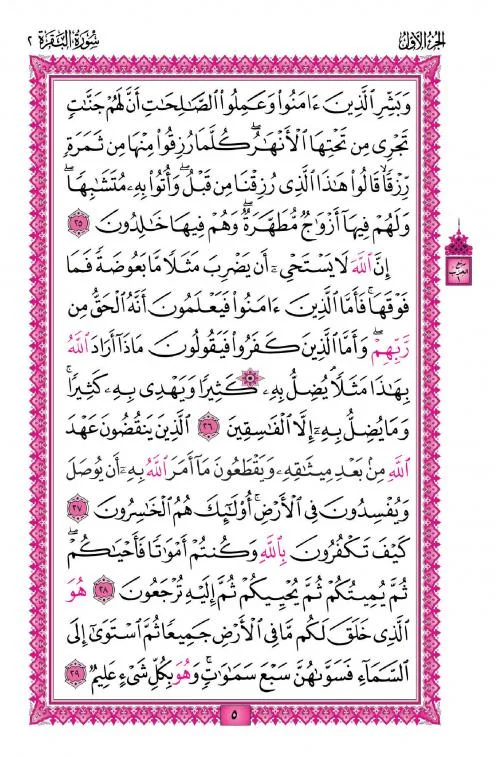 الجزء الأول
سورة البقرة ٢
وَبَشِّرِ ٱلَّذِينَ ءَامَنُوا۟ وَعَمِلُوا۟ ٱلصَّٰلِحَٰتِ أَنَّ لَهُمْ جَنَّٰتٍ
تَجْرِى مِن تَحْتِهَا ٱلْأَنْهَٰرُ ۖ كُلَّمَا رُزِقُوا۟ مِنْهَا مِن ثَمَرَةٍ
رِّزْقًا ۙ قَالُوا۟ هَٰذَا ٱلَّذِى رُزِقْنَا مِن قَبْلُ ۖ وَأُتُوا۟ بِهِۦ مُتَشَٰبِهًا ۖ
وَلَهُمْ فِيهَآ أَزْوَٰجٌ مُّطَهَّرَةٌ ۖ وَهُمْ فِيهَا خَٰلِدُونَ ٢٥
إِنَّ ٱللَّهَ لَا يَسْتَحْىِۦٓ أَن يَضْرِبَ مَثَلًا مَّا بَعُوضَةً فَمَا
فَوْقَهَا ۚ فَأَمَّا ٱلَّذِينَ ءَامَنُوا۟ فَيَعْلَمُونَ أَنَّهُ ٱلْحَقُّ مِن
رَّبِّهِمْ ۖ وَأَمَّا ٱلَّذِينَ كَفَرُوا۟ فَيَقُولُونَ مَاذَآ أَرَادَ ٱللَّهُ
بِهَٰذَا مَثَلًا ۘ يُضِلُّ بِهِۦ كَثِيرًا وَيَهْدِى بِهِۦ كَثِيرًا ۚ
وَمَا يُضِلُّ بِهِۦٓ إِلَّا ٱلْفَٰسِقِينَ ٢٦ ٱلَّذِينَ يَنقُضُونَ عَهْدَ
ٱللَّهِ مِنۢ بَعْدِ مِيثَٰقِهِۦ وَيَقْطَعُونَ مَآ أَمَرَ ٱللَّهُ بِهِۦٓ أَن يُوصَلَ
وَيُفْسِدُونَ فِى ٱلْأَرْضِ ۚ أُو۟لَٰٓئِكَ هُمُ ٱلْخَٰسِرُونَ ٢٧
كَيْفَ تَكْفُرُونَ بِٱللَّهِ وَكُنتُمْ أَمْوَٰتًا فَأَحْيَٰكُمْ ۖ
ثُمَّ يُمِيتُكُمْ ثُمَّ يُحْيِيكُمْ ثُمَّ إِلَيْهِ تُرْجَعُونَ ٢٨ هُوَ
ٱلَّذِى خَلَقَ لَكُم مَّا فِى ٱلْأَرْضِ جَمِيعًا ثُمَّ ٱسْتَوَىٰٓ إِلَى
ٱلسَّمَآءِ فَسَوَّىٰهُنَّ سَبْعَ سَمَٰوَٰتٍ ۚ وَهُوَ بِكُلِّ شَىْءٍ عَلِيمٌ ٢٩
٥